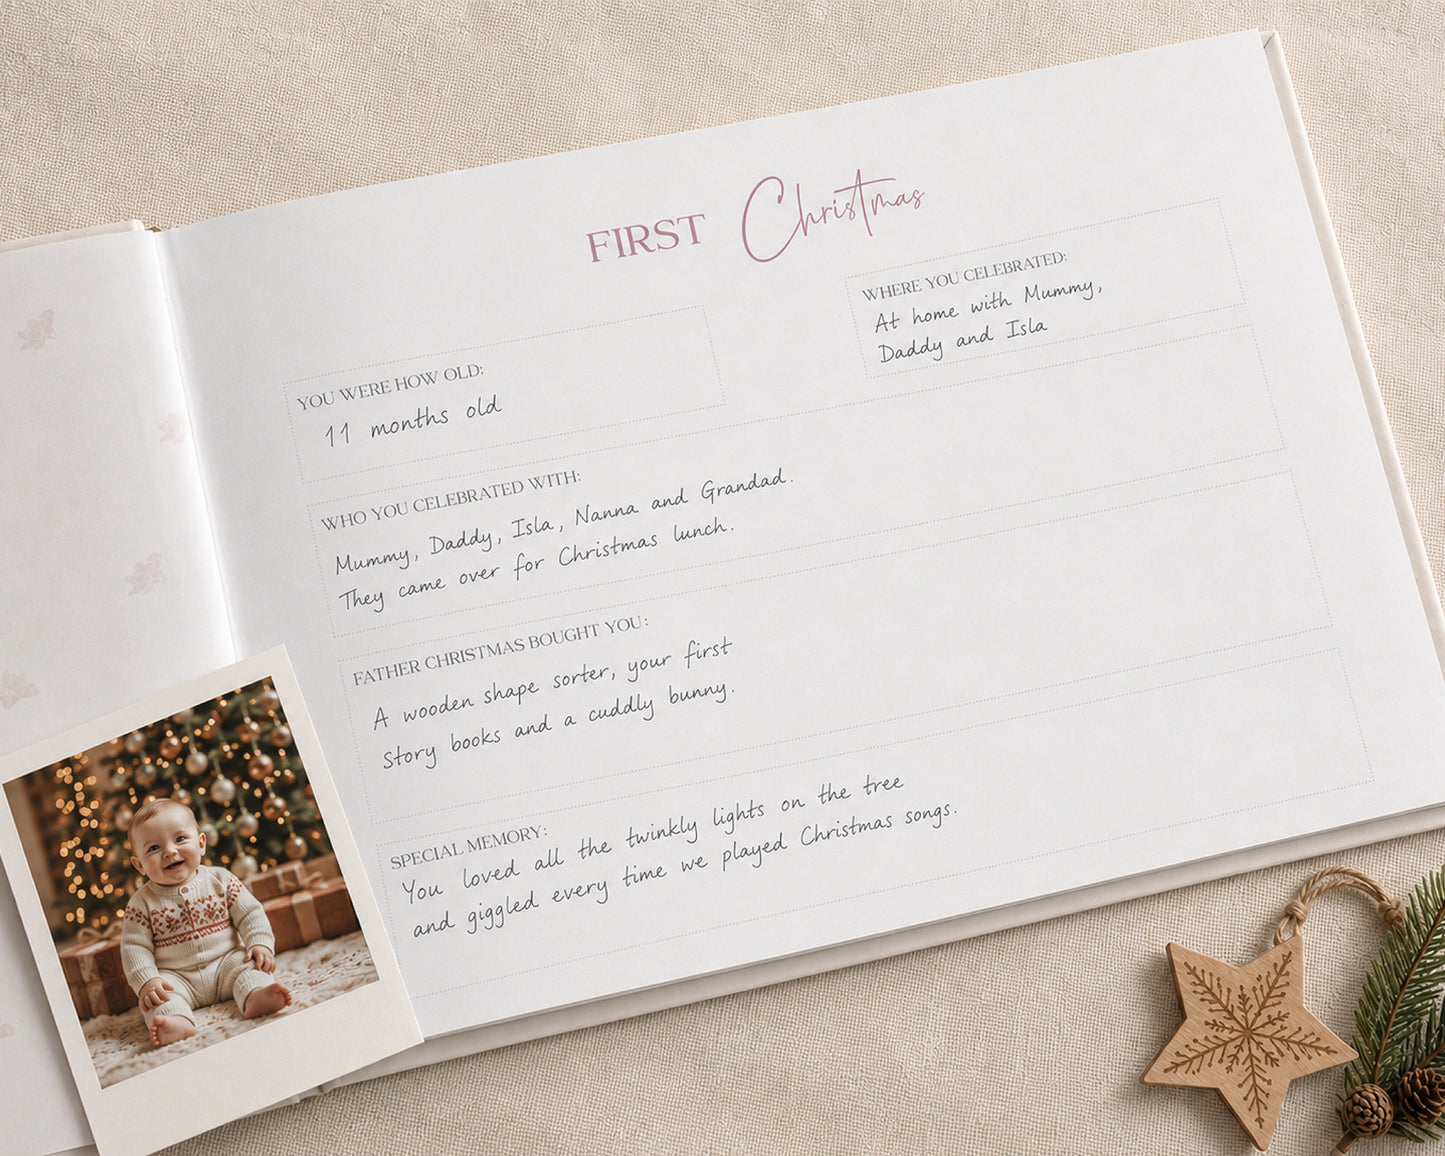 FIRST Christmas
WHERE YOU CELEBRATED:
At home with Mummy,
Daddy and Isla
YOU WERE HOW OLD:
11 months old
WHO YOU CELEBRATED WITH:
Mummy, Daddy, Isla, Nanna and Grandad.
They came over for Christmas lunch.
FATHER CHRISTMAS BOUGHT YOU:
A wooden shape sorter, your first
story books and a cuddly bunny.
SPECIAL MEMORY:
You loved all the twinkly lights on the tree
and giggled every time we played Christmas songs.